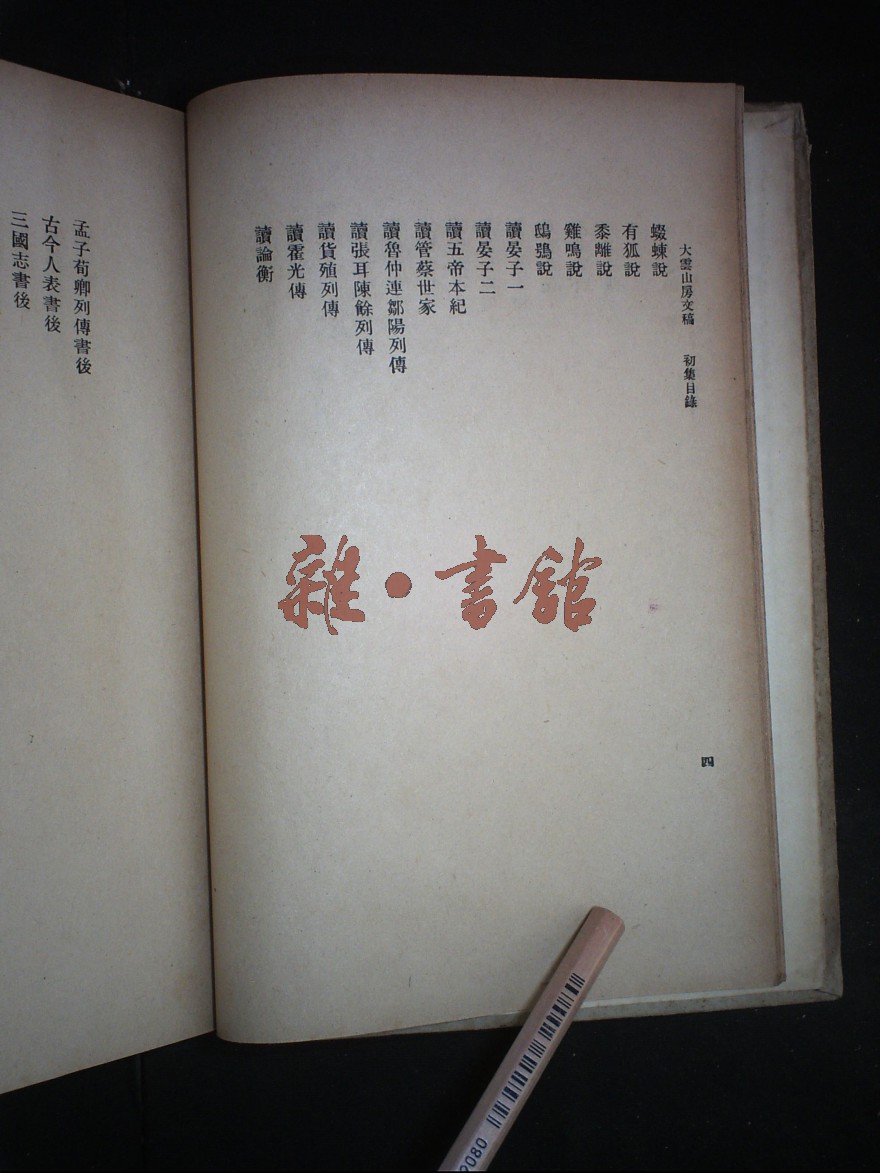 大雲山房文稿 初集目錄
蝃蝀說
有狐說
黍離說
雞鳴說
鴟鴞說
讀晏子一
讀晏子二
讀五帝本紀
讀管蔡世家
讀魯仲連鄒陽列傳
讀張耳陳餘列傳
讀貨殖列傳
讀霍光傳
讀論衡
四
孟子荀卿列傳書後
古今人表書後
三國志書後
雜·書館
2080